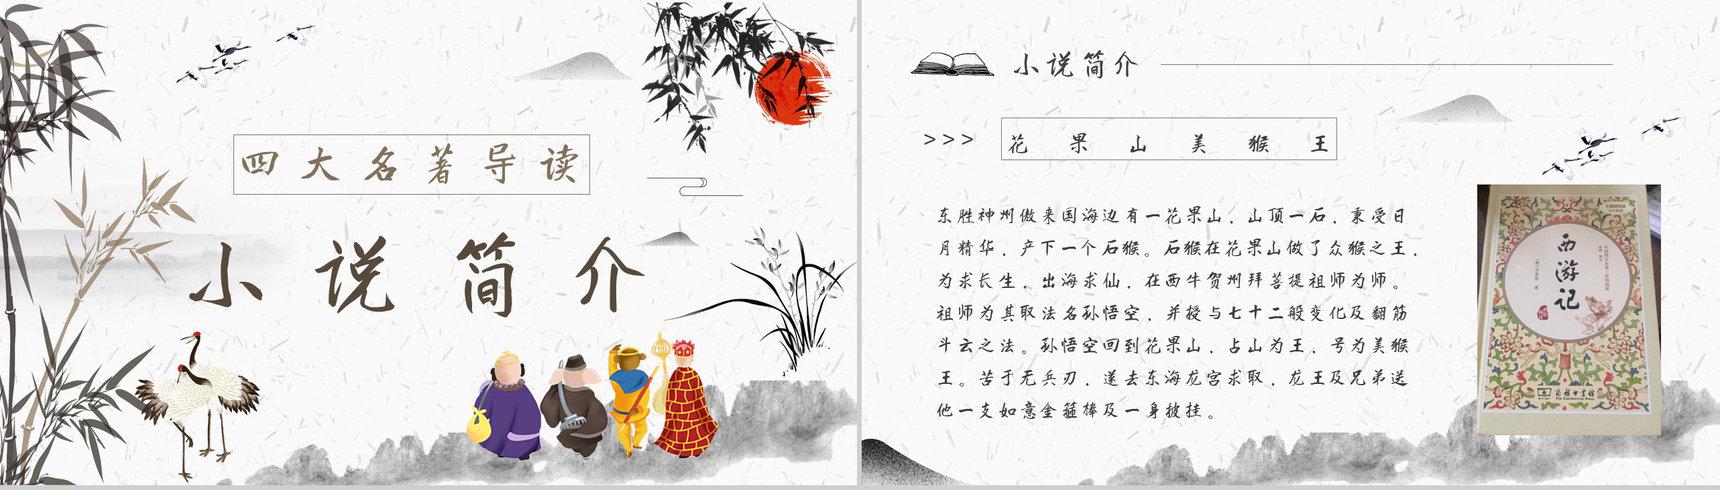 四大名著导读
小说简介
小说简介
>>>
花果山美猴王
东胜神州傲来国海边有一花果山，山顶一石，秉受日
月精华，产下一个石猴。石猴在花果山做了众猴之王，
为求长生，出海求仙，在西牛贺州拜菩提祖师为师。
祖师为其取法名孙悟空，并授与七十二般变化及翻筋
斗云之法。孙悟空回到花果山，占山为王，号为美猴
王。苦于无兵刃，遂去东海龙宫求取，龙王及兄弟送
他一支如意金箍棒及一身披挂。
西游记
商务印书馆